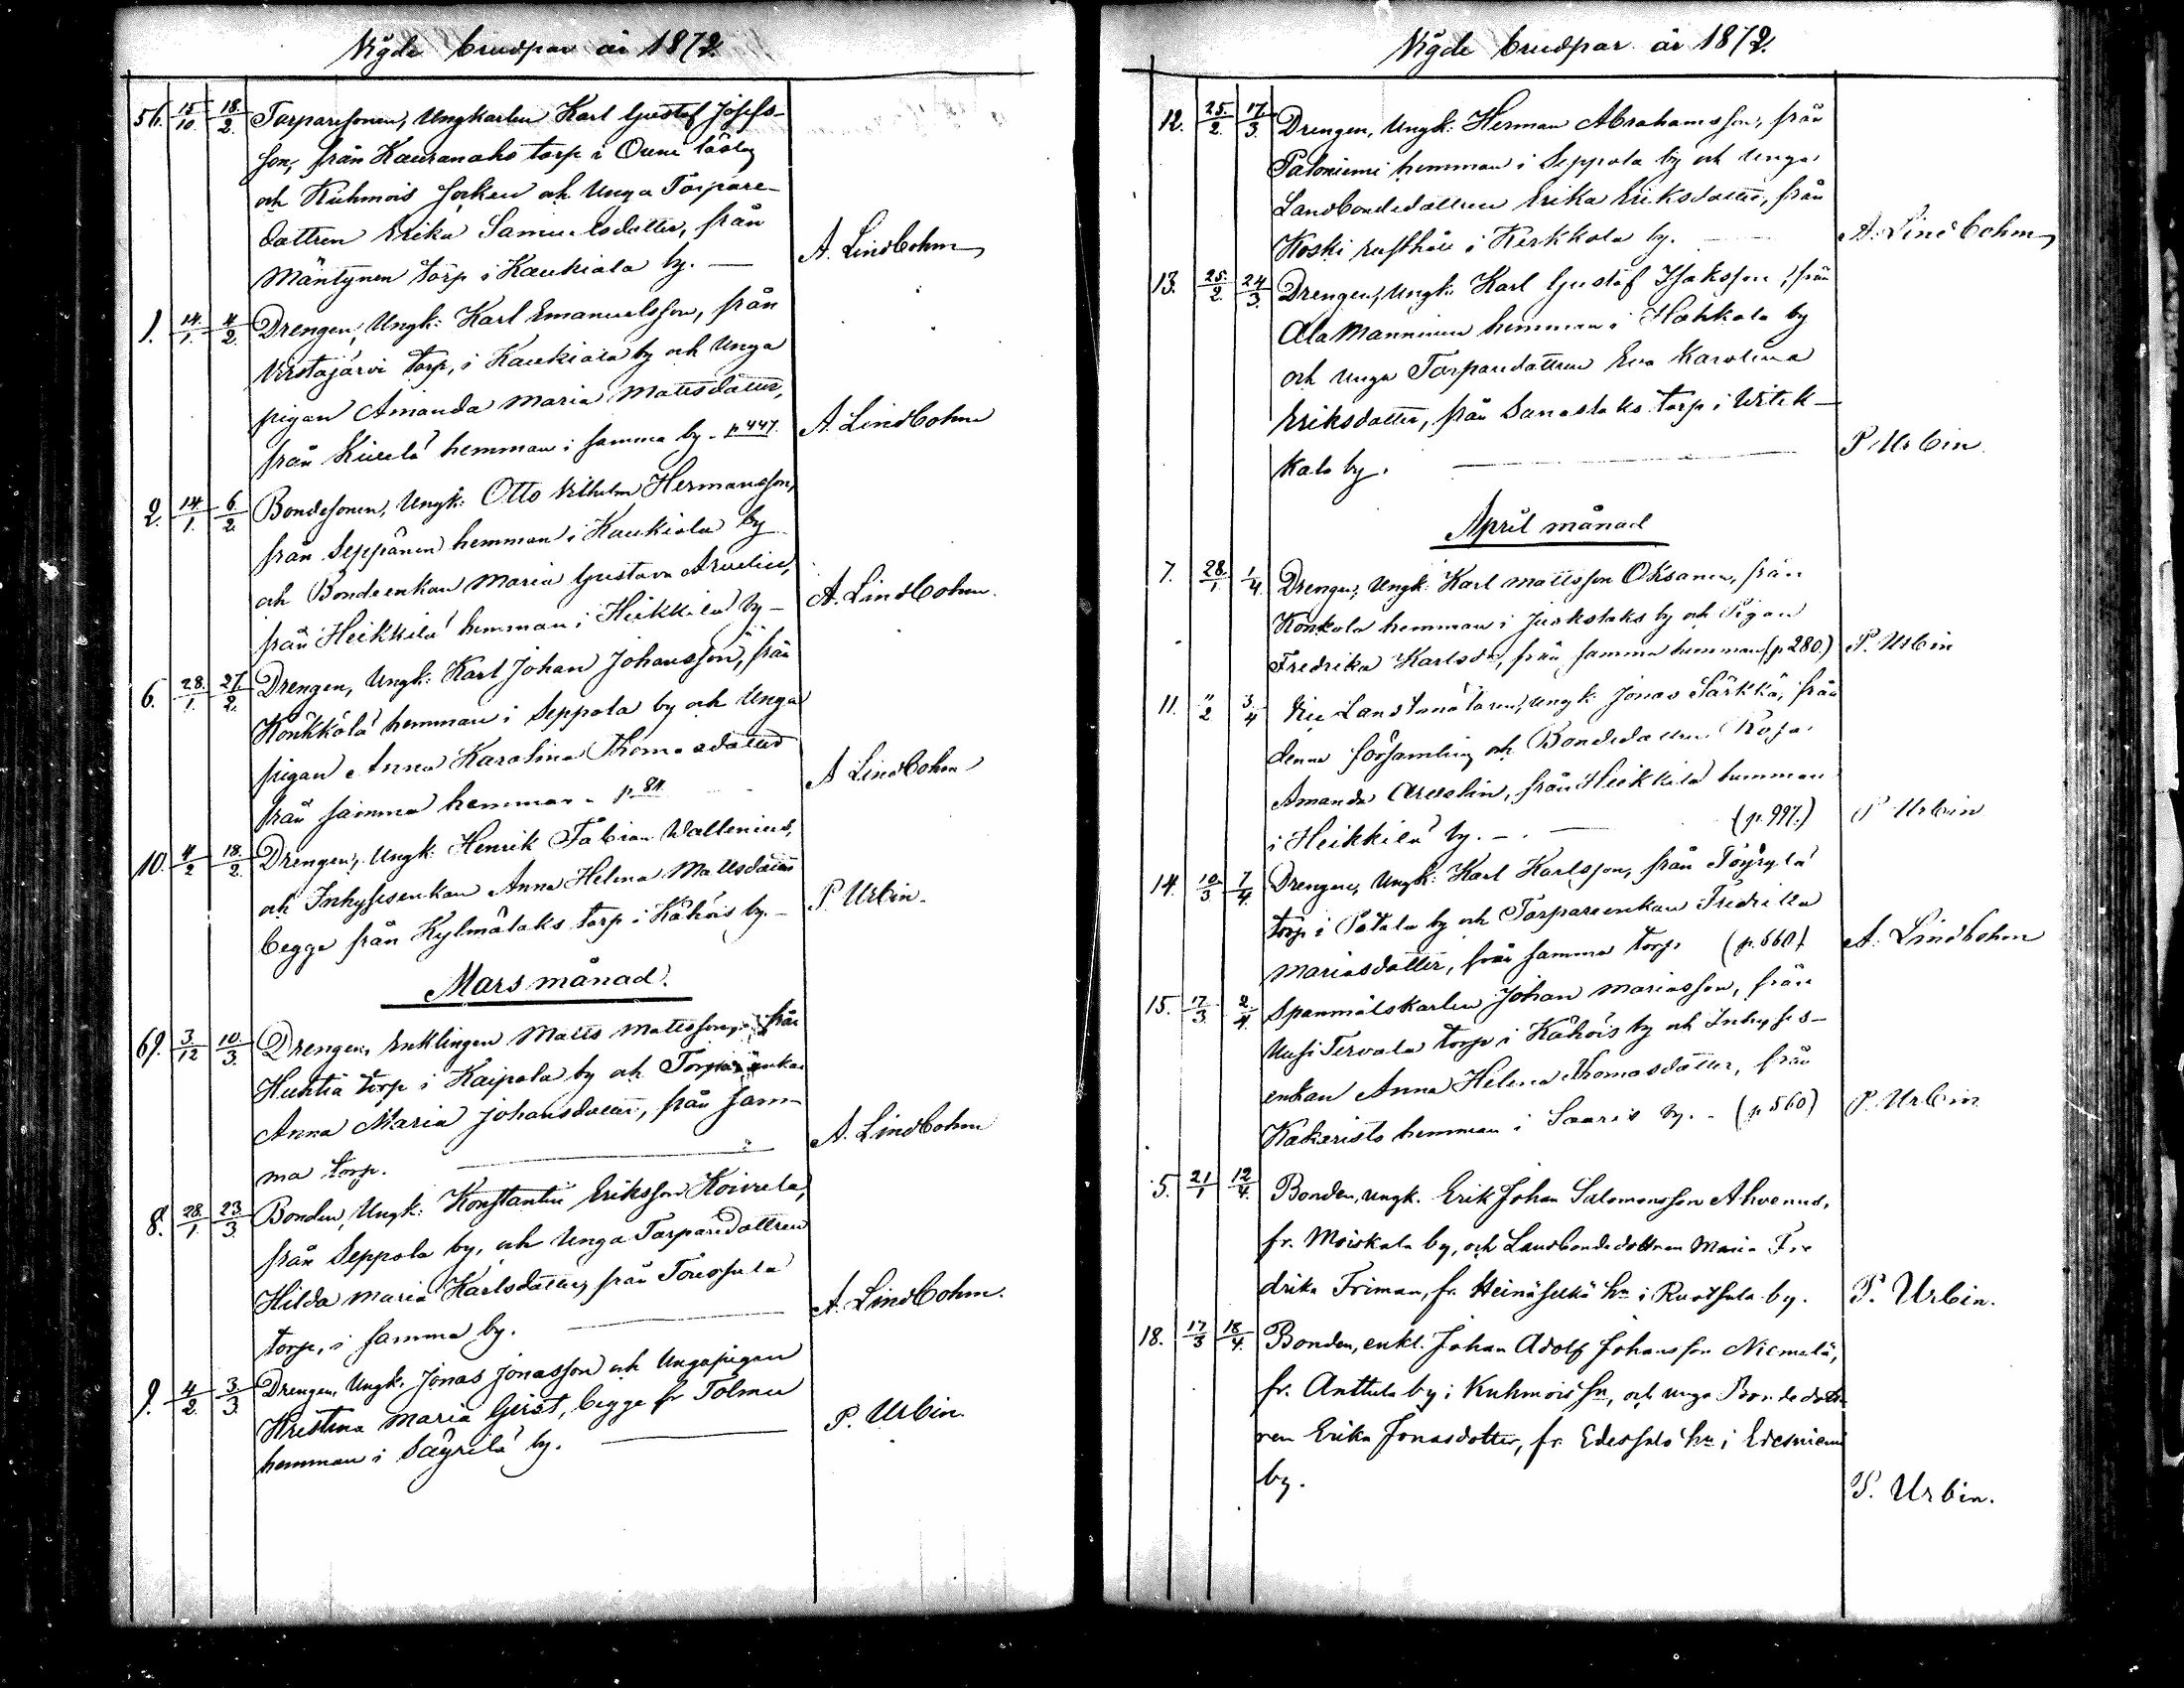 Vigde brudpar år 1872.
56. 15/10. 18./2. Torparesonen, Ungkarlen Karl Gustaf Josefs-
son, från Kauranaho torp i Ouni
och Kuhmois socken och Unga Torpare-
dottren Erika Samuelsdotter, från
Mäntynen torp i Kaukiala by. — A. Lindbohm
1. 14./1. 4/2. Drengen, Ungk: Karl Emanuelsson, från
Virstajärvi torp, i Kaukiala by och Unga
pigan Amanda Maria Mattsdotter,
från hemman i samma by - p 447. A. Lindbohm
2. 14/1. 6/2. Bondesonen, Ungk: Otto Vilhelm Hermansson,
från Seppänen hemman i Kaukiala by
och Bondeenkan Maria Gustava Arvelin,
från Heikkilä hemman i Heikkilä by - A. Lindbohm.
6. 28./1. 27./2. Drengen, Ungk: Karl Johan Johansson, från
Könkkölä hemman i Seppola by och Unga
pigan Anna Karolina Thomasdotter
från samma hemman - p. 811 A Lindbohm
10. 4/2 18./2. Drengen, Ungk: Henrik Fabian Wallenius,
och Inhysesenkan Anna Helena Mattsdotter
begge från Kylmälaks torp i Kähöis by. - P. Urbin.
Mars månad.
69. 3/12 10./3. Drengen, Enklingen Matts Mattsson, från
Huhtia torp i Kaipola by och Torpareenkan
Anna Maria Johansdotter, från sam-
ma torp. — A. Lindbohm
8. 28./1. 23/3. Bonden, Ungk: Konstantin Eriksson Koivula,
från Seppola by, och Unga Torparedottren
Hilda Maria Karlsdotter, från
torp, i samma by. — A. Lindbohm.
9. 4/2. 3/3. Drengen, Ungk. Jonas Jonasson och Unga pigan
Kristina Maria Geist, begge fr Tolmu
hemman i Säyrilä by. — P. Urbin.
Vigde brudpar år 1872.
12. 25./2. 17/3. Drengen, Ungk: Herman Abrahamsson, från
Paloniemi hemman i Seppola by och Unga
Landbondedottren Erika Eriksdotter, från
Koski rusthåll i Kerkkola by. — A. Lindbohm
13. 25./2. 24/3. Drengen, Ungk: Karl Gustaf Isaksson, från
Ala Manninen hemman i Hahkala by
och unga Torparedottren Eva Karolina
Eriksdotter, från torp i Witik-
kala by. — P Urbin
April månad
7. 28./1 1/4. Drengen, Ungk: Karl Mattsson Oksanen, från
Konkola hemman i by och Pigan
Fredrika Karlsdr, från samma hemman (p 280.) P. Urbin
11. "/2 3/4 Ungk: Jonas Särkkä, från
denna församling och Bondedottren Rosa
Amanda Arvelin, från Heikkilä hemman
i Heikkilä by. — (p. 997.) P Urbin
14. 10/3 7/4. Drengen, Ungk: Karl Karlsson, från Töyrylä
torp i Pätälä by och Torpareenkan Fredrika
Mariasdotter, från samma torp (p. 660). A. Lindbohm
15. 17/3. 2/4. Spanmålskarlen Johan Mariasson, från
Uusi Tervala torp i Kähöis by och Inhyses-
enkan Anna Helena Thomasdotter, från
Kakaristo hemman i Saaris by. - (p 560) P. Urbin
5. 21/1 12/4. Bonden, ungk. Erik Johan Salomonsson Ahvenus,
fr. Moiskala by, och Landbondedottren Maria Fre
drika Friman, fr. Heinäselkä hn i Ruotsula by. P. Urbin.
18. 17/3 18/4. Bonden, enkl. Johan Adolf Johansson Niemelä,
fr. Anttula by i Kuhmois sn, och unga Bondedott-
ren Erika Jonasdotter, fr. Edessalo hn i Edesniemi
by. P. Urbin.